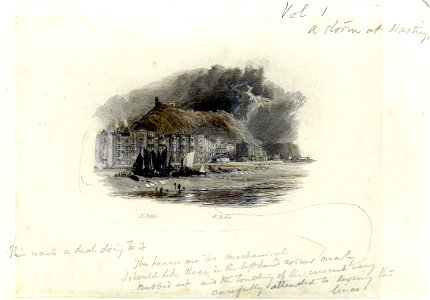 Vol 1
A storm at Hastings
This wants a deal doing to it
The houses are too mechanical
I should like these in the lefthand corner nearly
rubbed out and the touching of this crescent very
carefully attended to loosing the
lines /